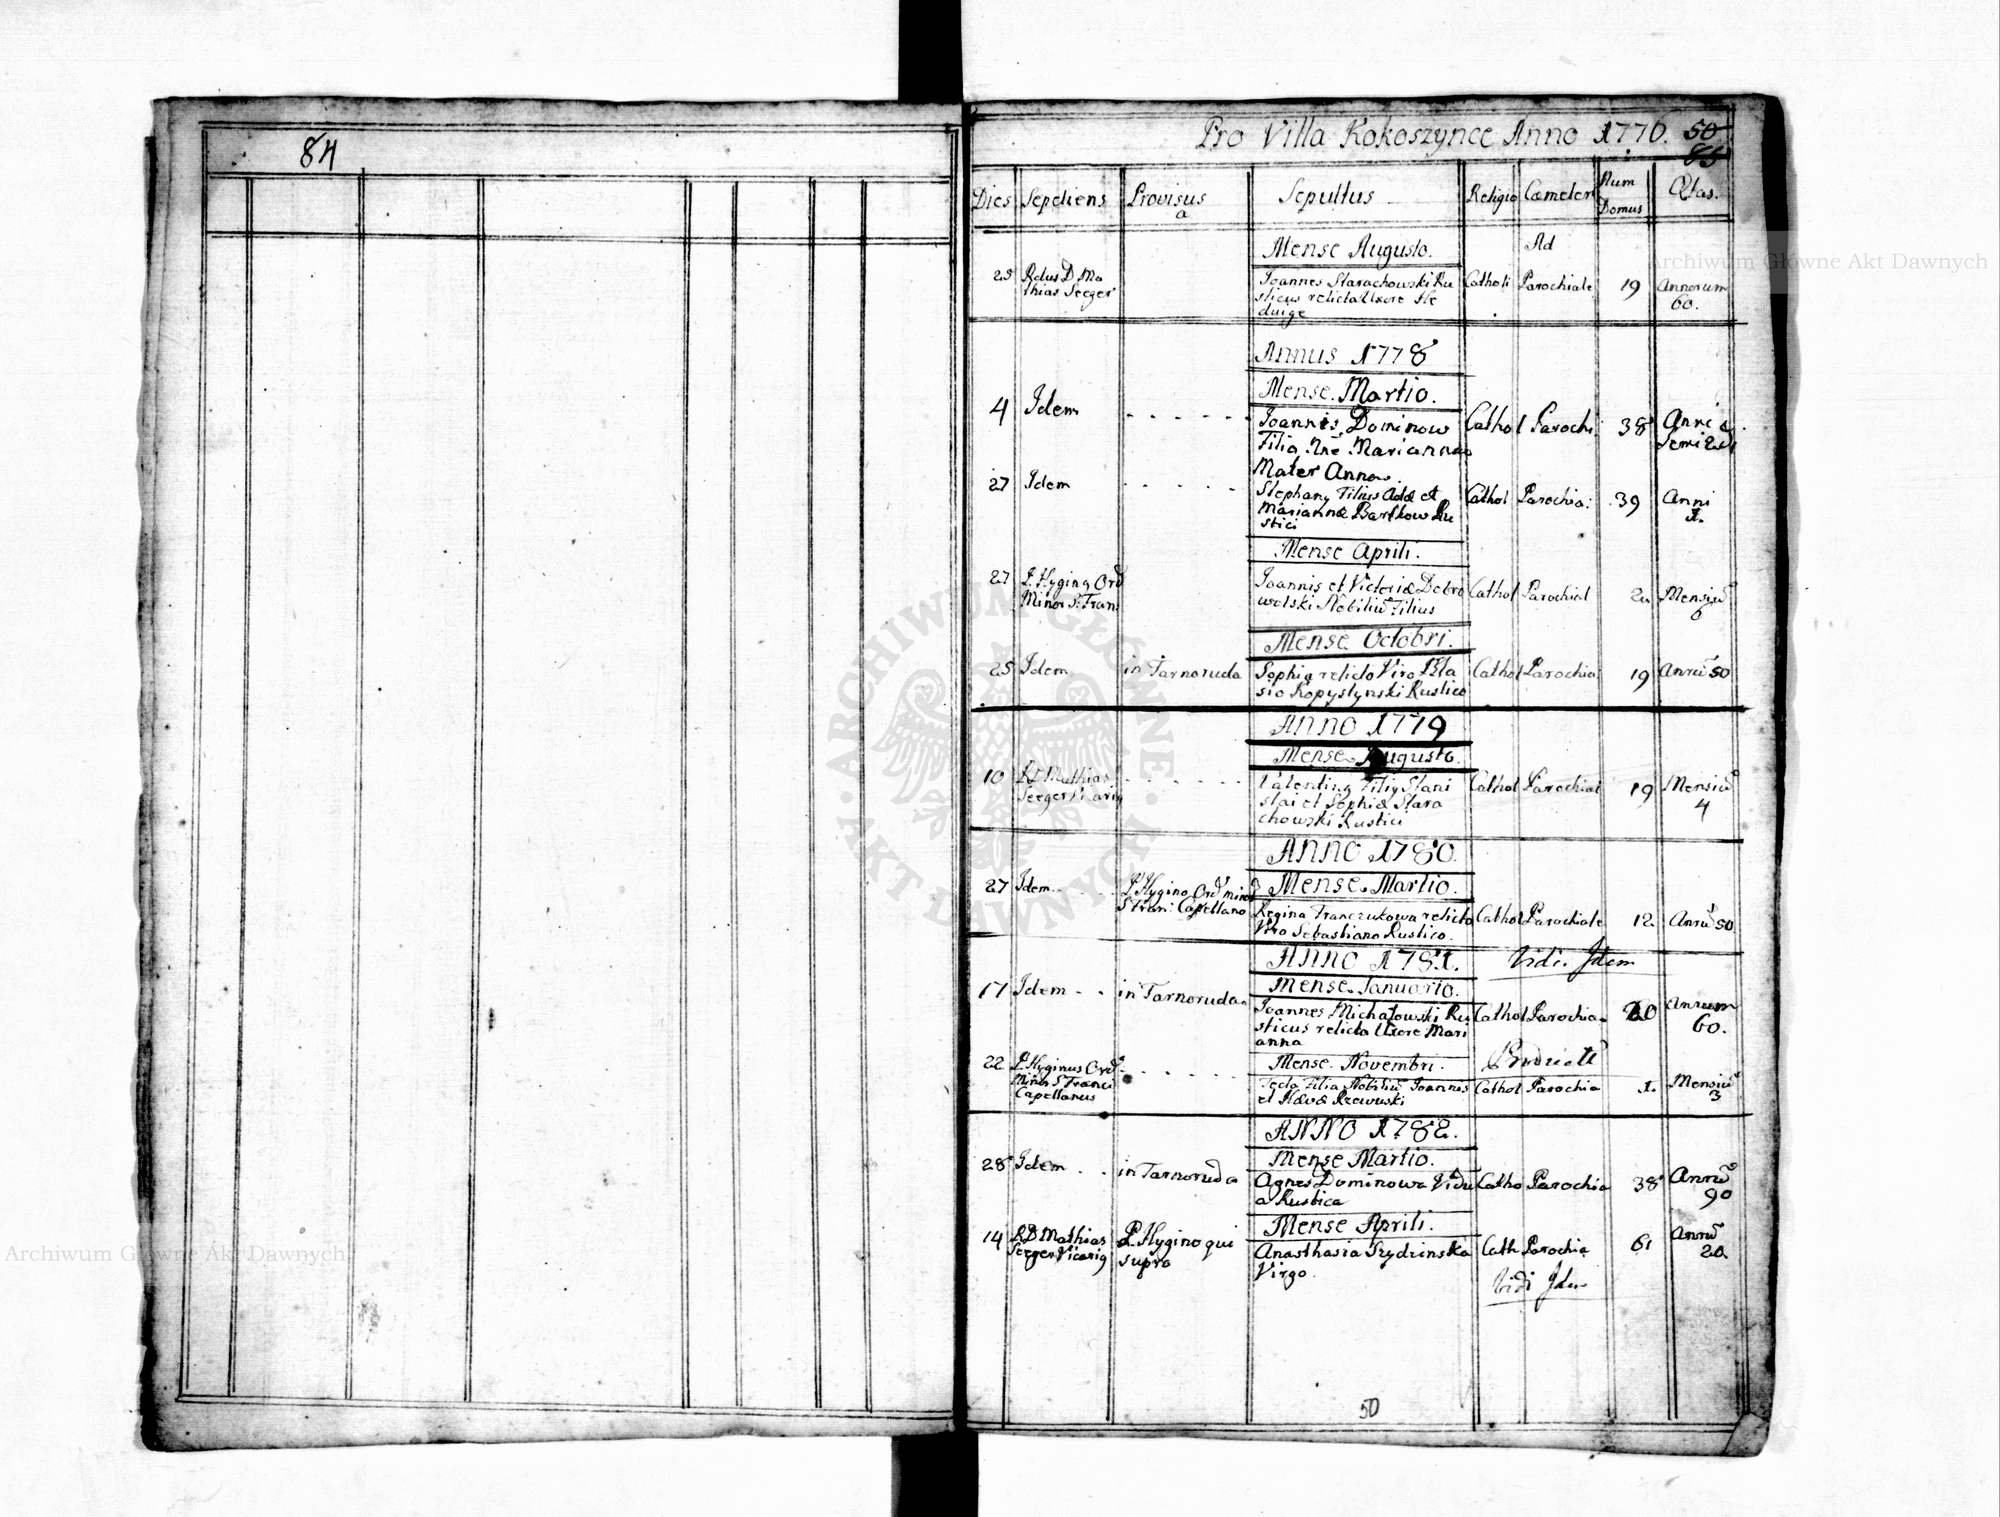 84
Pro Villa Kokoszynce Anno 1776. 50
85
Dies Sepeliens Provisus a Sepultus Religio Cæmeter Num Domus Ætas.
Mense Augusto. Ad
25 Rdus D Ma
thias Seeger
Joannes Starachowski Ru
sticus relicta Uxore He
dvige
Catholi Parochiale 19 Annorum
60.
Annus 1778
Mense Martio.
4 Idem
Joannis Dominow
Filia Nne Marianna
Mater Anna.
Cathol Parochi 38 Anni
27 Idem
Stephanus Filius Adæ et
Mariannæ Bartkow Ru
stici
Cathol Parochia: 39 Anni
1.
Mense Aprili.
27 P. Hyginus Ord
Minor S. Fran:
Joannis et Victoriæ Dobro
wolski Nobiliū Filius
Cathol Parochial Mensiū
6
Mense Octobri.
25 Idem in Tarnoruda
Sophia relicto Viro Bla
sio Kopystynski Rustico
Cathol Parochia 19 Anrū 50
Anno 1779
Mense Augusto.
10 RD Mathias
Seeger Vicarius
Valentinus Filius Stani
slai et Sophiæ Stara
chowski Rustici
Cathol Parochial 19 Mensiū
4
ANNO 1780.
Mense Martio.
27 Idem P. Hygino Ord minor
S Fran: Capellano
Regina Franczukowa relicto
Viro Sebastiano Rustico.
Cathol Parochiale 12 Anrū 50
ANNO 1781. Vidi Idem
Mense Januario.
17 Idem in Tarnoruda
Joannes Michałowski Ru
sticus relicta Uxore Mari
anna
Cathol Parochia 20 Annum
60.
Mense Novembri.
22 P. Hyginus Ord
Minor S Franci
Capellanus
Tecla Filia Nobiliū Joannis
et Hævæ Rzewuski
Cathol Parochia 1. Mensiū
3
ANNO 1782.
Mense Martio.
28 Idem in Tarnoruda
Agnes Dominowa Vidu
a Rustica
Catho Parochia 38 Annū
90
Mense Aprili.
14 RD Mathias
Seeger Vicarius
P. Hygino qui
supra
Anasthasia Szydzinska
Virgo.
Cath Parochia 61 Annū
20
Vidi Idem
50
Archiwum Główne Akt Dawnych
Archiwum Główne Akt Dawnych
ARCHIWUM GŁÓWNE AKT DAWNYCH